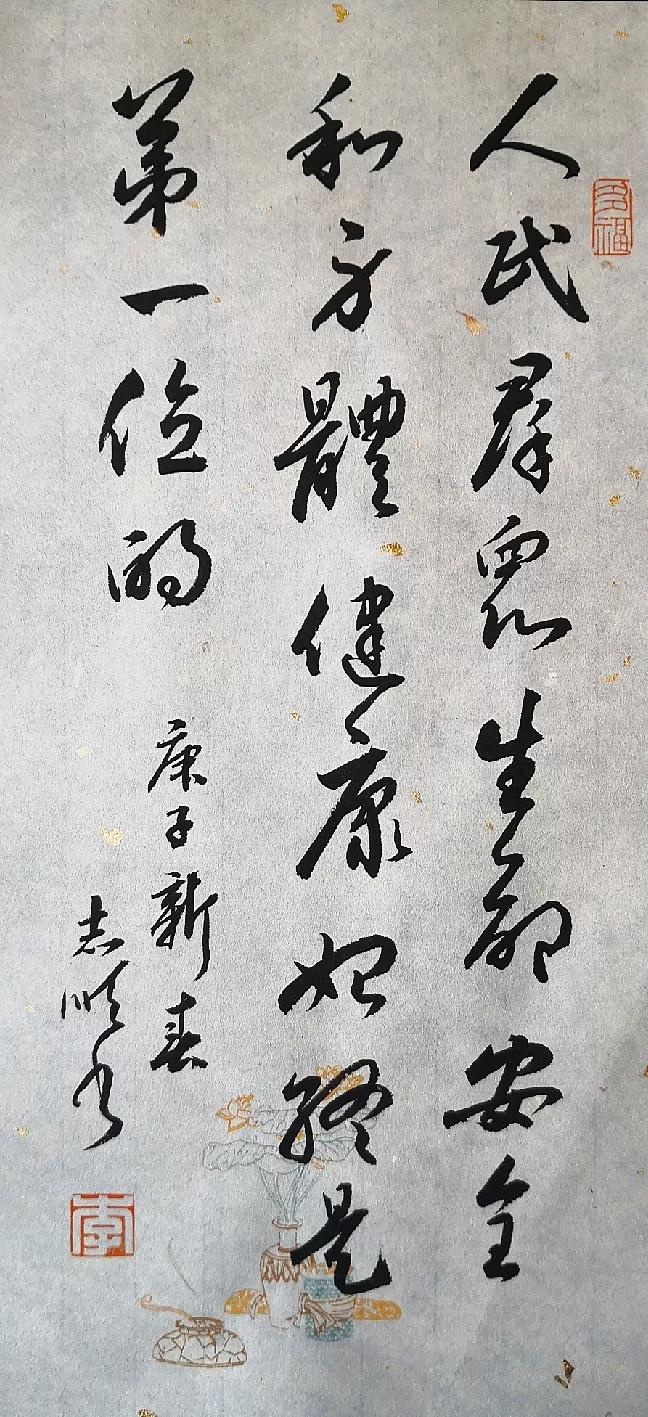 人民群眾生命安全
和身體健康始終是
第一位的
庚子新春
志順书
多福
李